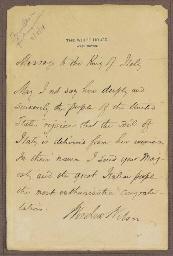 THE WHITE HOUSE
WASHINGTON
Message to the King of Italy
May I not say how deeply and
sincerely the people of the United
States rejoice that the soil of
Italy is delivered from her enemies.
In their name I send your Maj-
esty and the great Italian people
the most enthusiastic congratu-
lations.
Woodrow Wilson